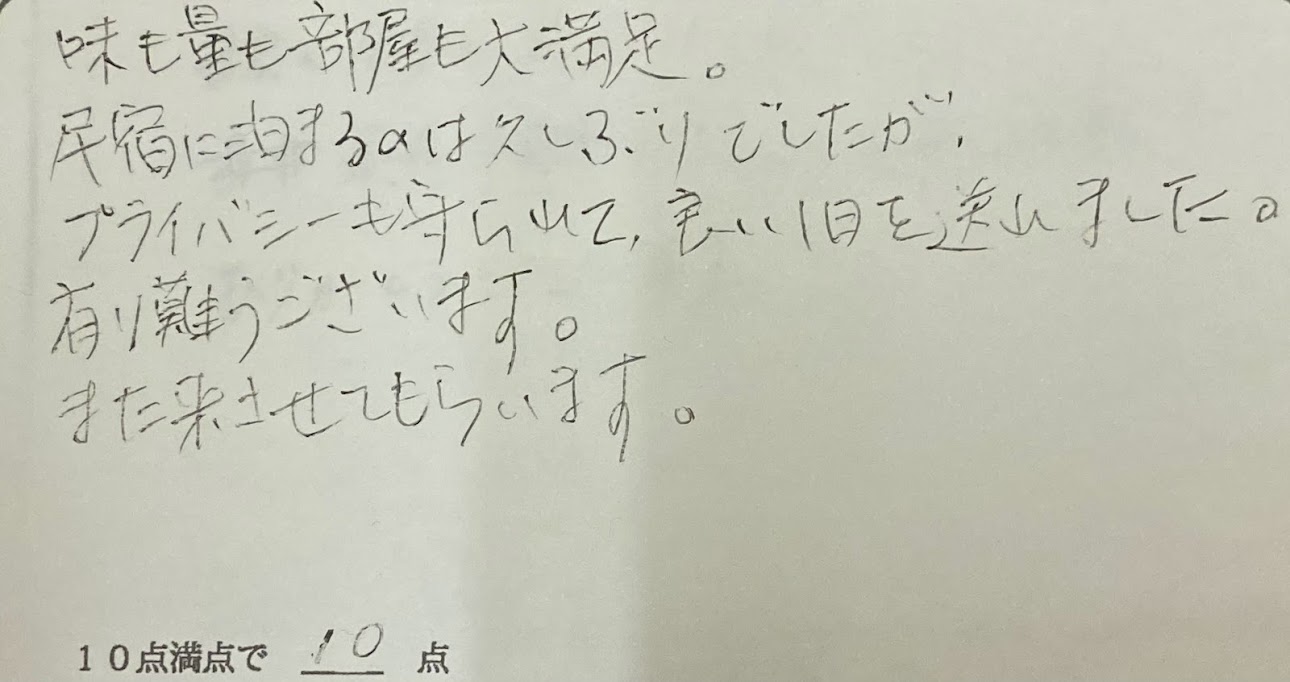 味も量も部屋も大満足。
民宿に泊まるのは久しぶりでしたが、
プライバシーも守られて、良い1日を送れました。
有り難うございます。
また来させてもらいます。
10点満点で 10 点